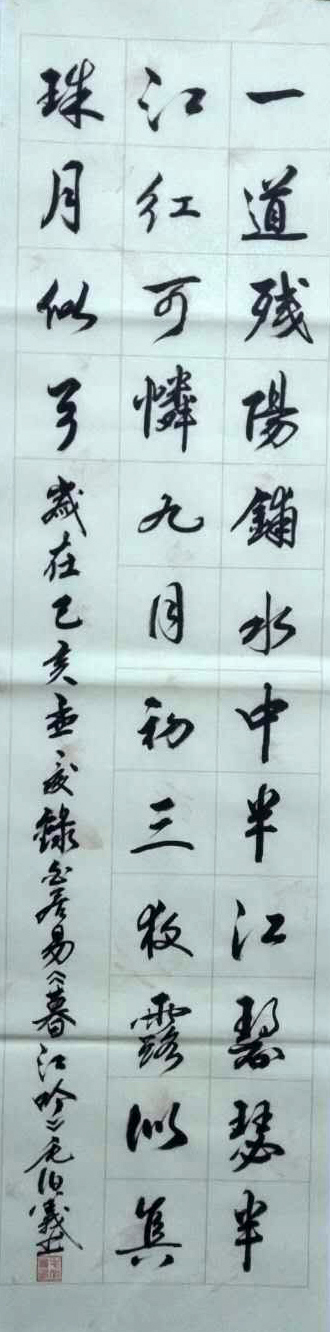 一道残陽鋪水中半江瑟瑟半
江红可憐九月初三夜露似真
珠月似弓 歲在己亥孟夏錄白居易《暮江吟》毛伯義书